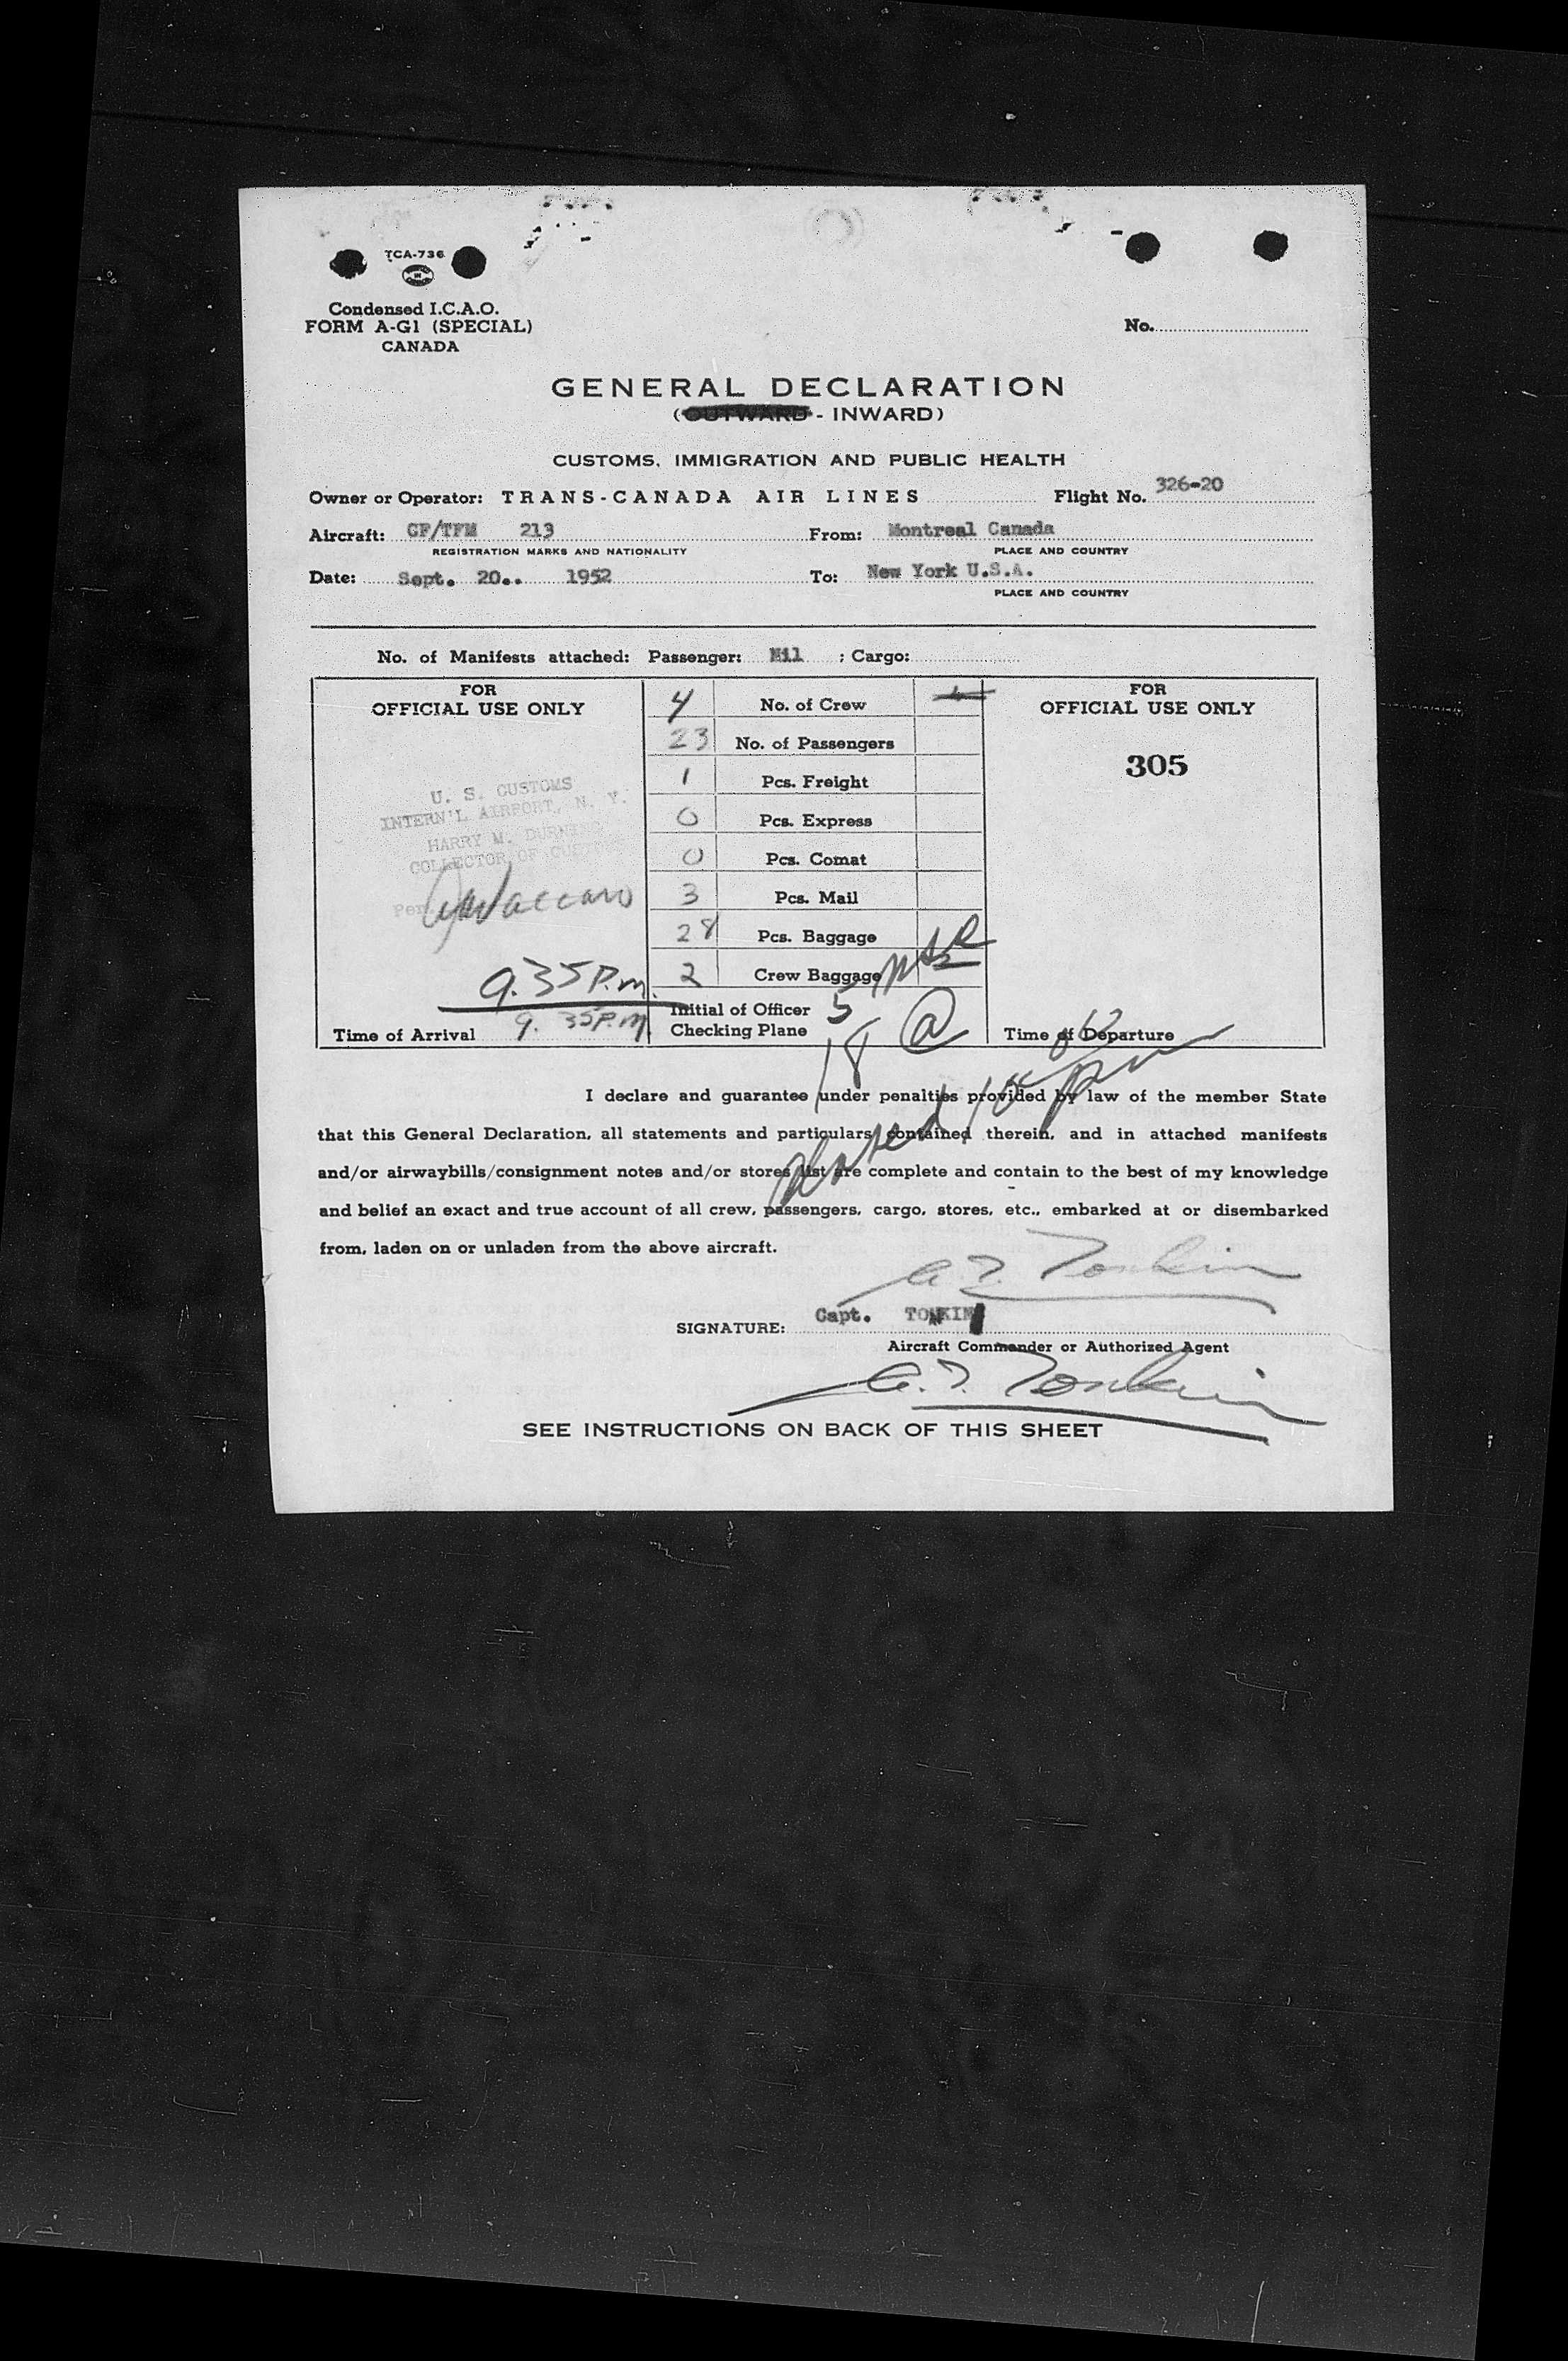 TCA-736
Condensed I.C.A.O.
FORM A-G1 (SPECIAL)
CANADA
No.
GENERAL DECLARATION
(OUTWARD - INWARD)
CUSTOMS, IMMIGRATION AND PUBLIC HEALTH
Owner or Operator: TRANS-CANADA AIR LINES Flight No. 326-20
Aircraft: CF/TFM 213 From: Montreal Canada
REGISTRATION MARKS AND NATIONALITY PLACE AND COUNTRY
Date: Sept. 20.. 1952 To: New York U.S.A.
PLACE AND COUNTRY
No. of Manifests attached: Passenger: Nil ; Cargo:
FOR
OFFICIAL USE ONLY
U. S. CUSTOMS
INTERN'L AIRPORT, N. Y.
HARRY M. DURNING
COLLECTOR OF CUSTOMS
Per
9.35 P.m.
Time of Arrival 9.35P.M.
4 No. of Crew 4
23 No. of Passengers
1 Pcs. Freight
0 Pcs. Express
0 Pcs. Comat
3 Pcs. Mail
28 Pcs. Baggage
2 Crew Baggage
Initial of Officer 5
Checking Plane 18
FOR
OFFICIAL USE ONLY
305
Time of Departure
I declare and guarantee under penalties provided by law of the member State
that this General Declaration, all statements and particulars contained therein, and in attached manifests
and/or airwaybills/consignment notes and/or stores list are complete and contain to the best of my knowledge
and belief an exact and true account of all crew, passengers, cargo, stores, etc., embarked at or disembarked
from, laden on or unladen from the above aircraft.
A.T. Tonkin
SIGNATURE: Capt. TONKIN
Aircraft Commander or Authorized Agent
A.T. Tonkin
SEE INSTRUCTIONS ON BACK OF THIS SHEET